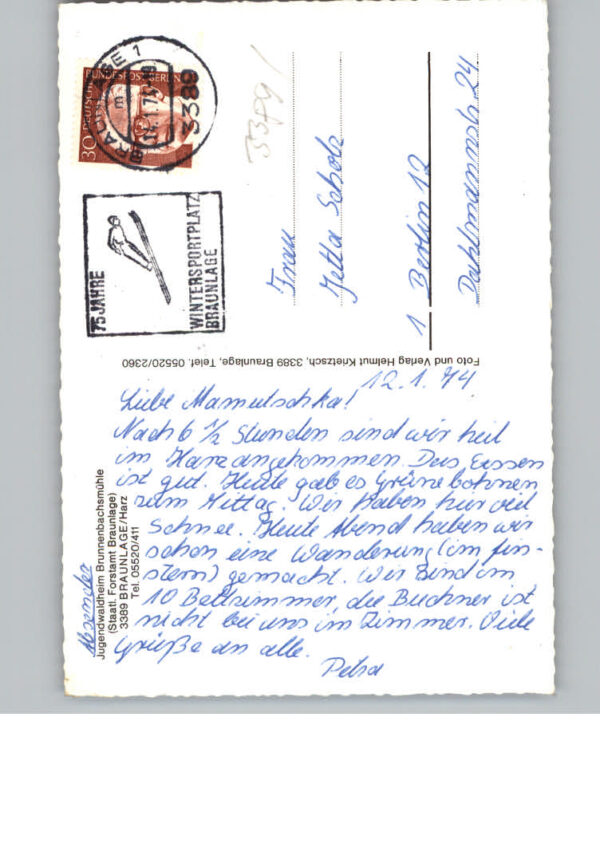 12.1.74
Liebe Mamutschka!
Nach 6 1/2 Stunden sind wir heil
im Harz angekommen. Das Essen
ist gut. Heute gab es Grüne bohnen
zum Mittag. Wir haben hier viel
Schnee. Heute Abend haben wir
schon eine Wanderung (im fin-
stern) gemacht. Wir sind im
10 Bettzimmer, die Buchner ist
nicht bei uns im Zimmer. Viele
Grüße an alle.
Petra
Absender
Jugendwaldheim Brunnenbachsmühle
(Staatl. Forstamt Braunlage)
3389 BRAUNLAGE/Harz
Tel. 05520/411
Foto und Verlag Helmut Krietzsch, 3389 Braunlage, Telef. 05520/2360
Frau
Jetta Scholz
1 Berlin 12
Dahlmannstr. 24
75 JAHRE
WINTERSPORTPLATZ
BRAUNLAGE
30 DEUTSCHE BUNDESPOST BERLIN
BRAUNLAGE 1
3389